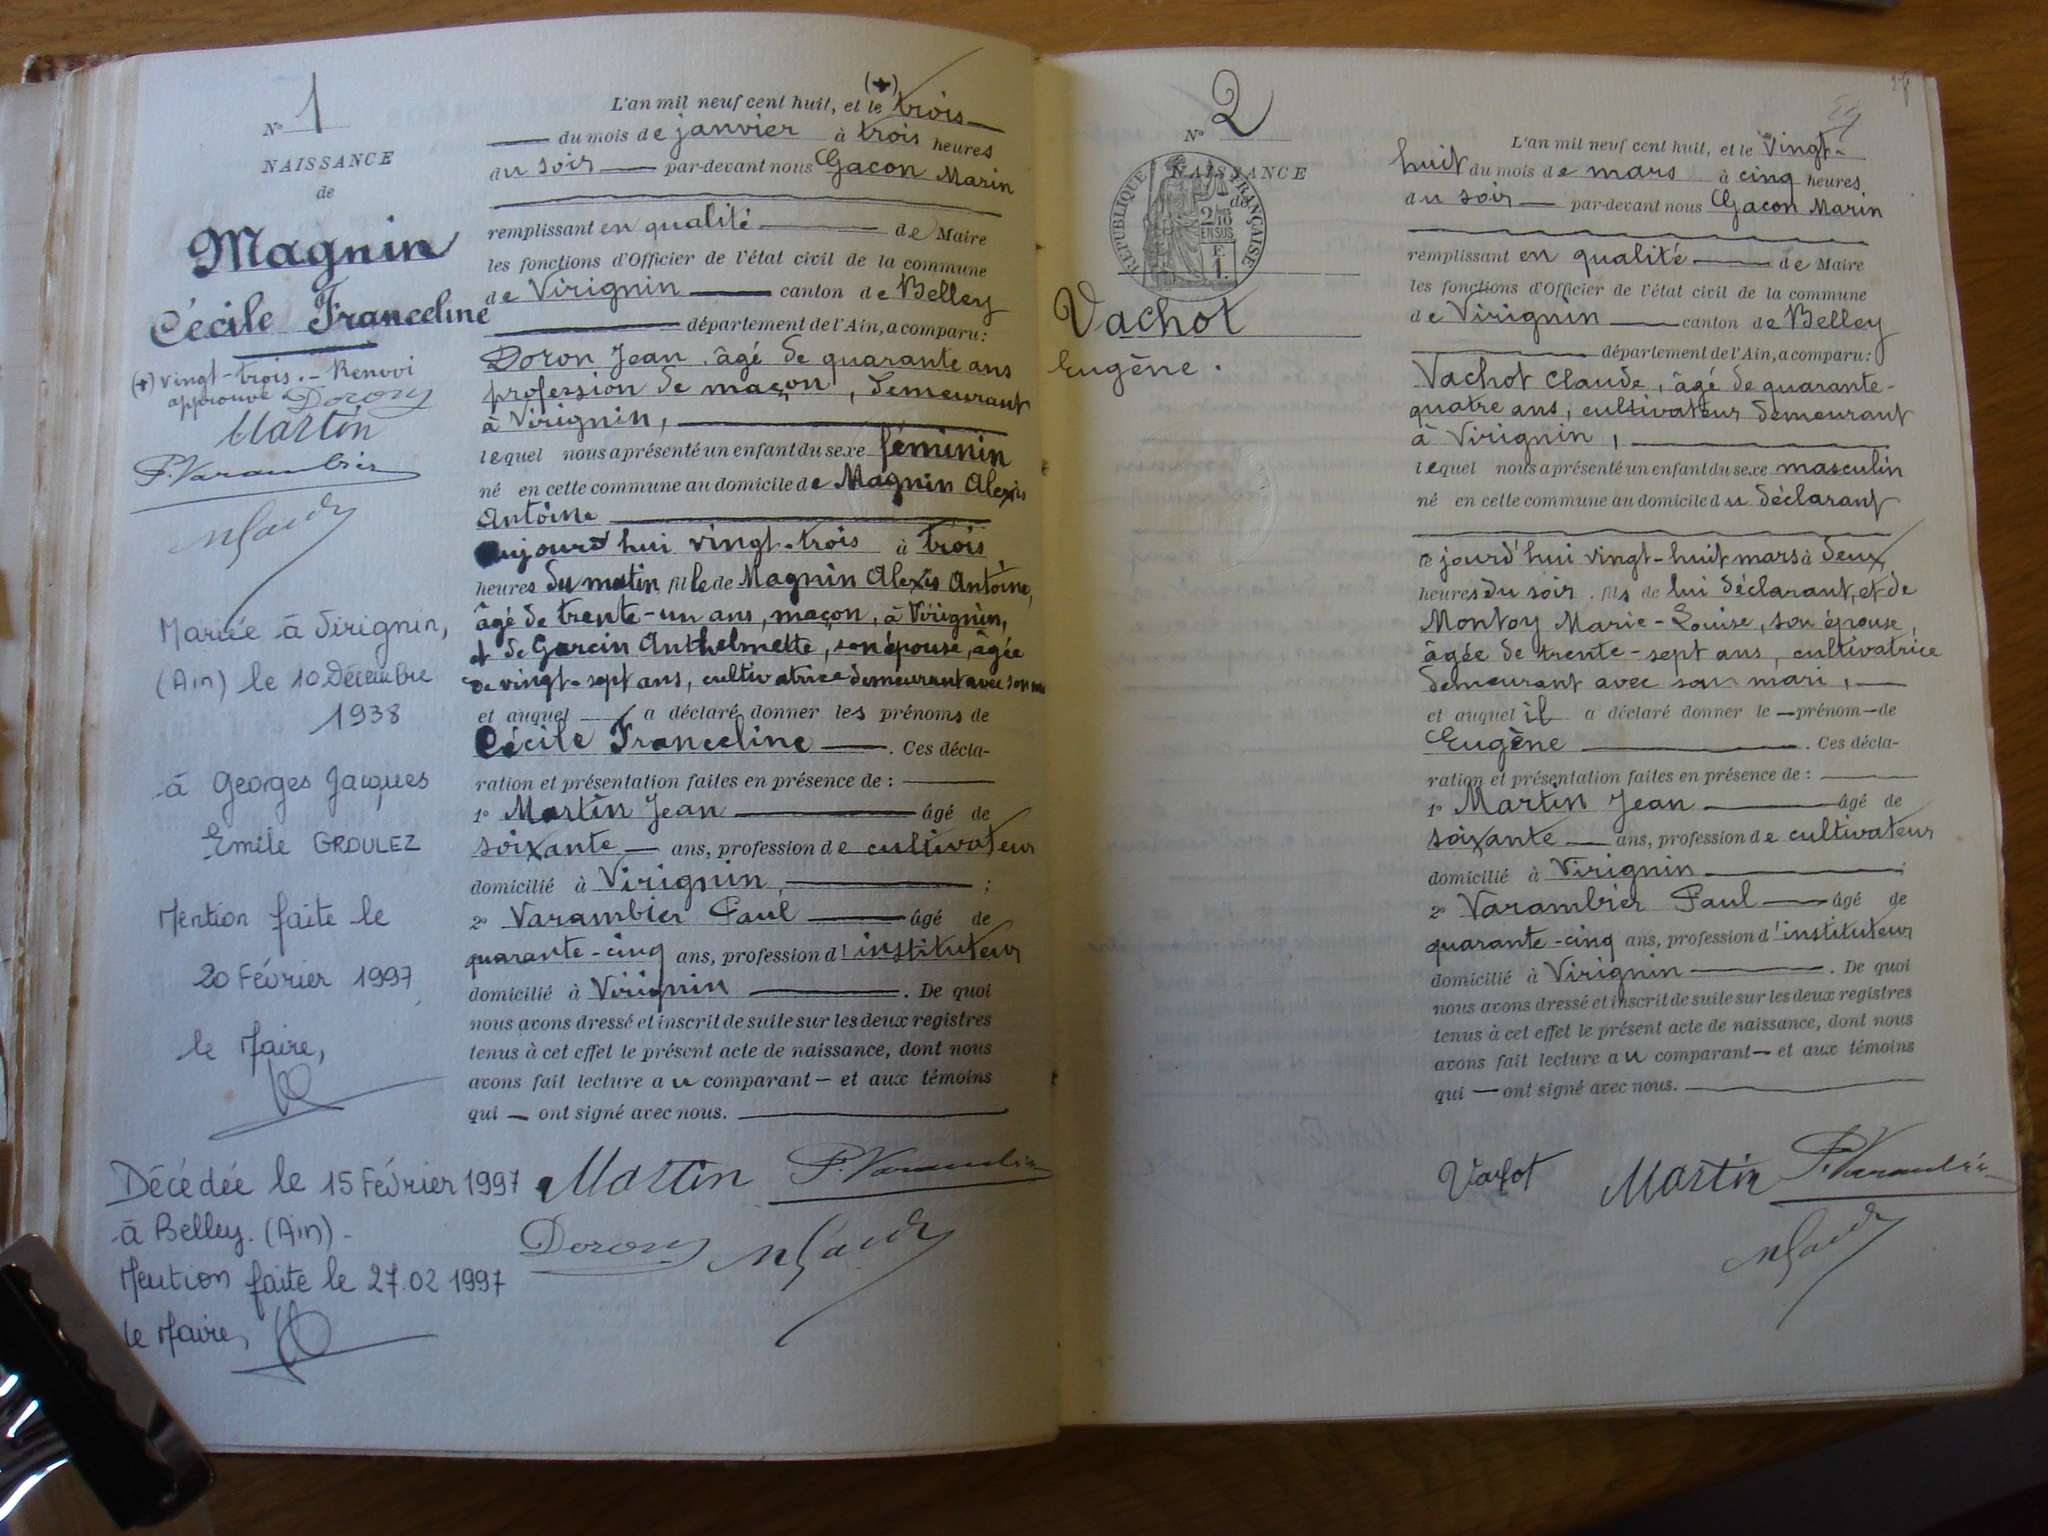 N° 1
NAISSANCE
de
Magnin
Cécile Franceline
(+) vingt-trois. - Renvoi
approuvé Doron
Martin
P. Varambier
Mariée à Virignin,
(Ain) le 10 Décembre
1938
à Georges Jacques
Emile GROULEZ
Mention faite le
20 Février 1997
le Maire,
Décédée le 15 Février 1997
à Belley. (Ain) -
Mention faite le 27.02 1997
le Maire,
(+)
L'an mil neuf cent huit, et le trois
du mois de janvier à trois heures
du soir par-devant nous Gacon Marin
remplissant en qualité de Maire
les fonctions d'Officier de l'état civil de la commune
de Virignin canton de Belley
département de l'Ain, a comparu :
Doron Jean, âgé de quarante ans
profession de maçon, demeurant
à Virignin,
lequel nous a présenté un enfant du sexe féminin
né en cette commune au domicile de Magnin Alexis
Antoine
aujourd'hui vingt-trois à trois
heures du matin fille de Magnin Alexis Antoine,
âgé de trente-un ans, maçon, à Virignin,
et de Garcin Anthelmette, son épouse, âgée
de vingt-sept ans, cultivatrice demeurant avec son
et auquel a déclaré donner les prénoms de
Cécile Franceline . Ces décla-
ration et présentation failes en présence de :
1° Martin Jean âgé de
soixante ans, profession de cultivateur
domicilié à Virignin ;
2° Varambier Paul âgé de
quarante-cinq ans, profession d'instituteur
domicilié à Virignin . De quoi
nous avons dressé et inscrit de suite sur les deux registres
tenus à cet effet le présent acte de naissance, dont nous
avons fait lecture au comparant et aux témoins
qui ont signé avec nous.
Martin P. Varambier
Doron
N° 2
NAISSANCE
de
RÉPUBLIQUE FRANÇAISE
2/10
EN SUS
F.
1.
Vachot
Eugène.
L'an mil neuf cent huit, et le vingt-
huit du mois de mars à cinq heures
du soir par-devant nous Gacon Marin
remplissant en qualité de Maire
les fonctions d'Officier de l'état civil de la commune
de Virignin canton de Belley
département de l'Ain, a comparu :
Vachot Claude, âgé de quarante-
quatre ans, cultivateur demeurant
à Virignin,
lequel nous a présenté un enfant du sexe masculin
né en cette commune au domicile du déclarant
ajourd'hui vingt-huit mars à deux
heures du soir. fils de lui déclarant, et de
Montoy Marie-Louise, son épouse,
âgée de trente-sept ans, cultivatrice
demeurant avec son mari,
et auquel il a déclaré donner le prénom de
Eugène . Ces décla-
ration et présentation failes en présence de :
1° Martin Jean âgé de
soixante ans, profession de cultivateur
domicilié à Virignin ;
2° Varambier Paul âgé de
quarante-cinq ans, profession d'instituteur
domicilié à Virignin . De quoi
nous avons dressé et inscrit de suite sur les deux registres
tenus à cet effet le présent acte de naissance, dont nous
avons fait lecture au comparant et aux témoins
qui ont signé avec nous.
Vachot Martin P. Varambier